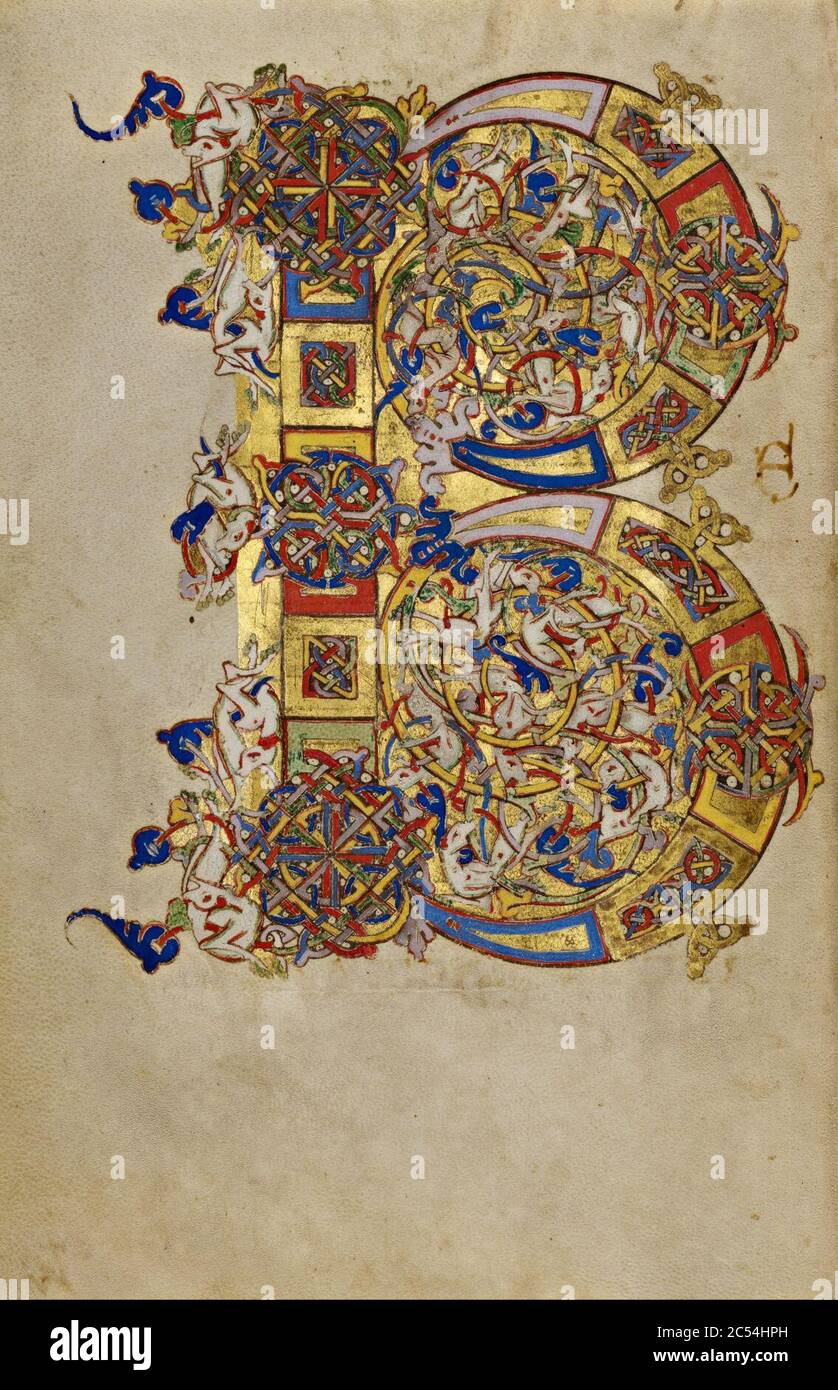 B
alamy
Image ID: 2C54HPH
www.alamy.com